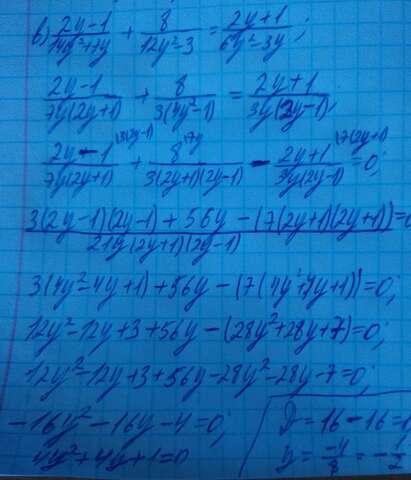 в) (2y-1)/(14y²+7y) + 8/(12y²-3) = (2y+1)/(6y²-3y);
(2y-1)/(7y(2y+1)) + 8/(3(4y²-1)) = (2y+1)/(3y(2y-1));
(2y-1)/(7y(2y+1)) |3(2y-1) + 8/(3(2y+1)(2y-1)) |7y - (2y+1)/(3y(2y-1)) |7(2y+1) = 0;
(3(2y-1)(2y-1) + 56y - (7(2y+1)(2y+1)))/(21y(2y+1)(2y-1)) = 0
3(4y²-4y+1)+56y-(7(4y²+4y+1))=0;
12y²-12y+3+56y-(28y²+28y+7)=0;
12y²-12y+3+56y-28y²-28y-7=0;
-16y²-16y-4=0;
4y²+4y+1=0
D=16-16=0
y=-4/8=-1/2